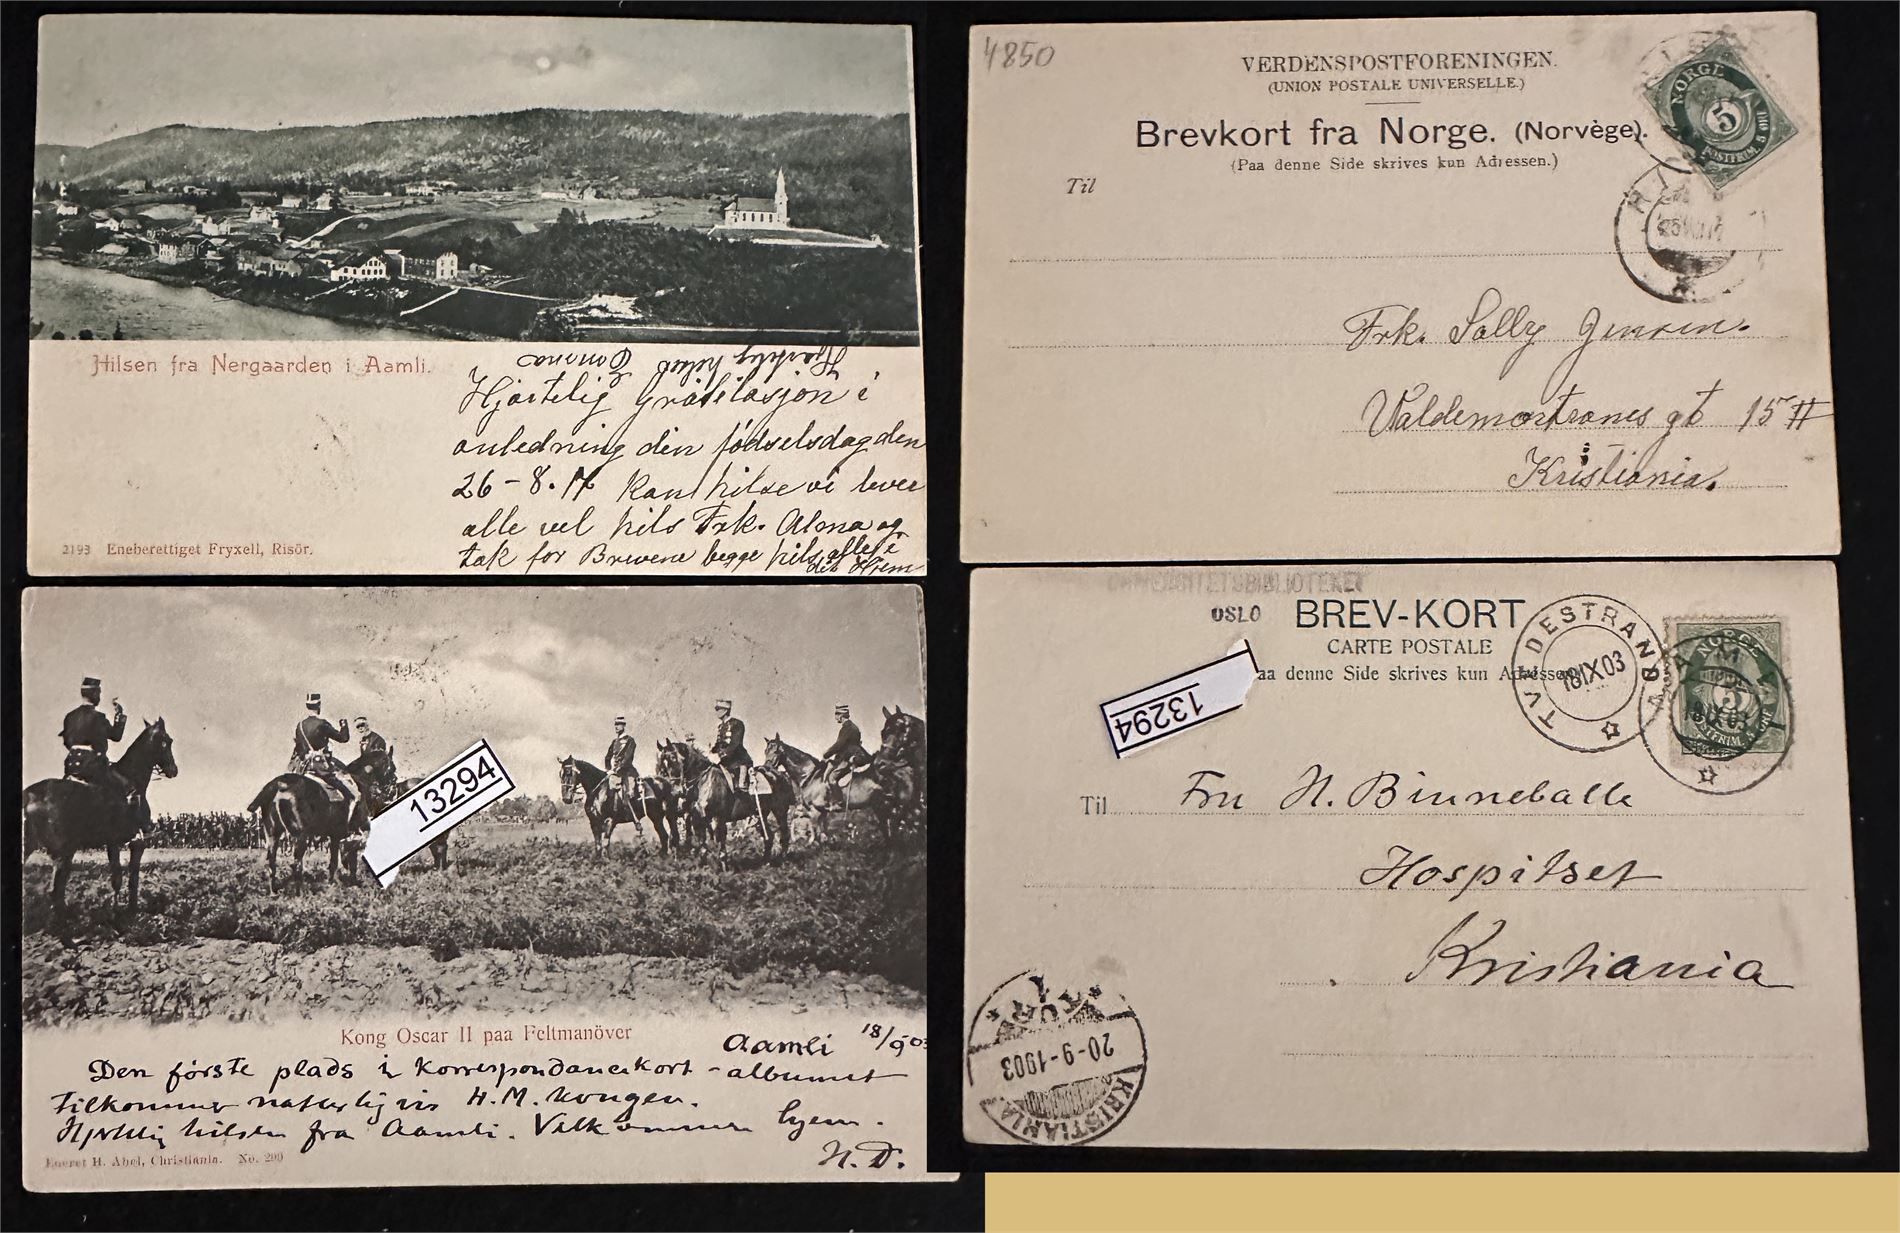 Hilsen fra Nergaarden i Aamli.
Hjertelig hilsen Emma
Hjertelig Gratilasjon i
anledning din födselsdag den
26-8.17 Kan hilse vi lever
alle vel hils Frk. Alma og
tak for Brevene begge hils alle i
dit Hjem
2193 Eneberettiget Fryxell, Risör.
4850
VERDENSPOSTFORENINGEN.
(UNION POSTALE UNIVERSELLE.)
Brevkort fra Norge. (Norvège).
(Paa denne Side skrives kun Adressen.)
Til
NORGE
5
POSTFRIM. 5 ØRE
Frk. Sally Jensen.
Valdemartranes gt 15 II
Kristiania.
13294
Kong Oscar II paa Feltmanöver
Aamli 18/9 03
Den første plads i korrespondancekort-albumet
tilkommer naturligvis H.M. Kongen.
Hjertelig hilsen fra Aamli. Velkommen hjem.
H. D.
Eneret H. Abel, Christiania. No. 200
UNIVERSITETSBIBLIOTEKET
OSLO
BREV-KORT
CARTE POSTALE
aa denne Side skrives kun Adressen
13294
TVEDESTRAND
18 IX 03
NORGE
5
POSTFRIM. 5 ØRE
Til
Fru H. Binneballe
Hospitset
Kristiania
20-9-1903
KRISTIANIA